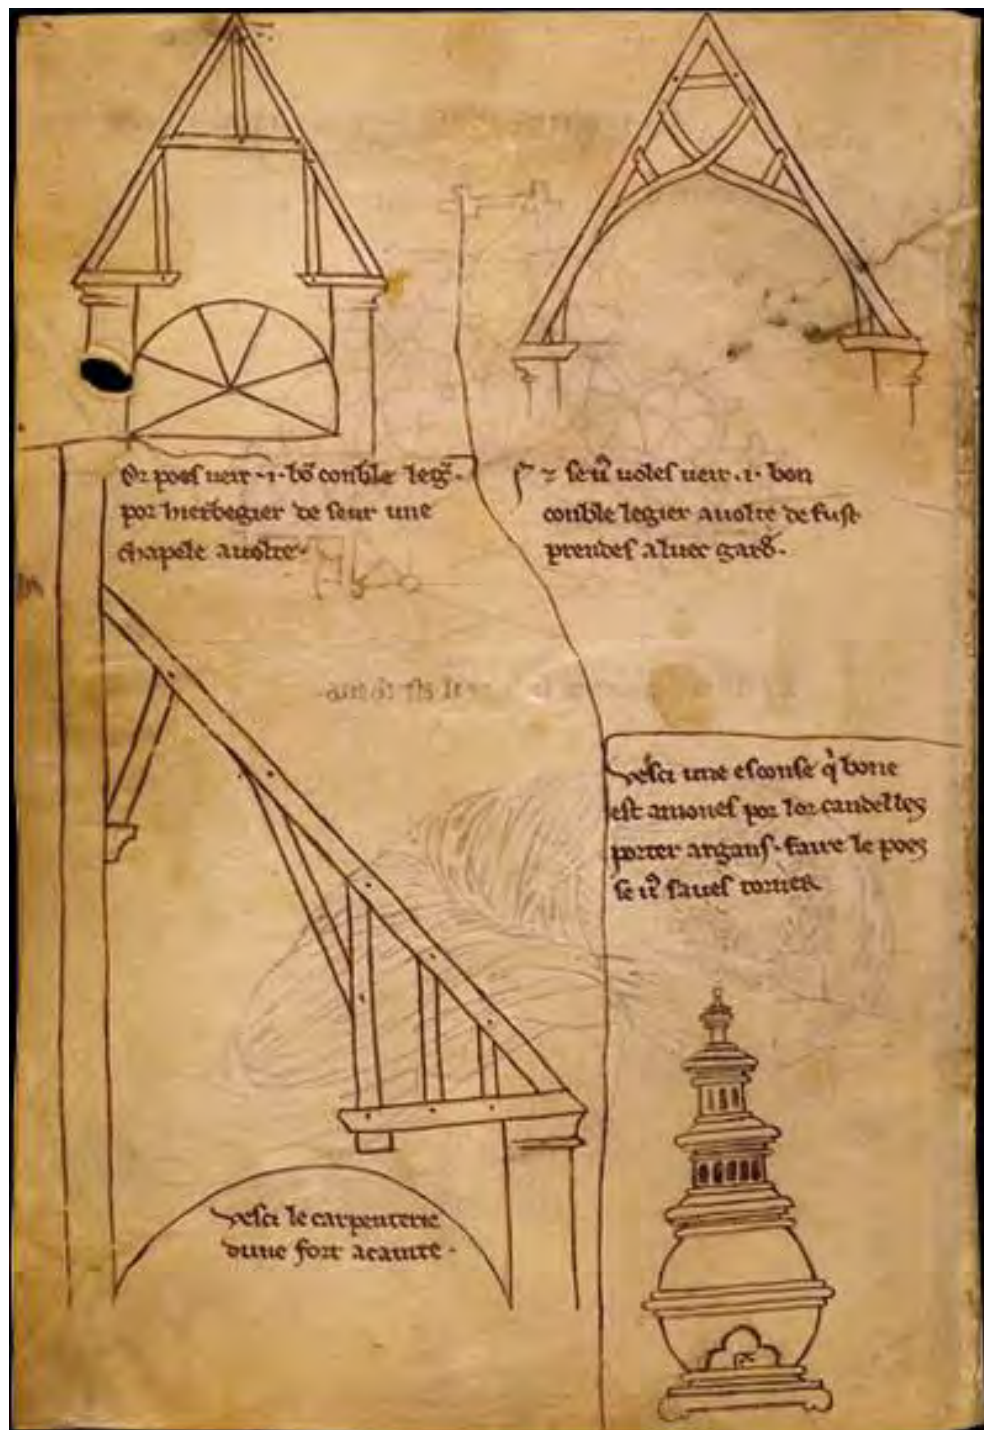 Or poes veir .i. bō conble legǐ.
por herbegier de seur une
chapele a volte.
⁊ se vˢ voles veir .i. bon
conble legier a volte de fust
prendes aluec gard.
vesci une esconse q̄ bone
est a mones por lor candelles
porter argans. faire le poes
se vˢ saves torner
vesci le carpenterie
dune fort acainte.